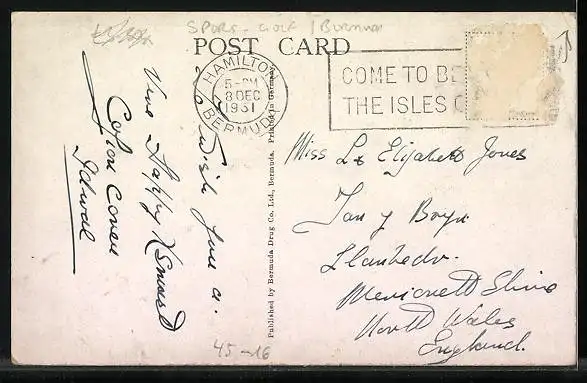 SPORT - GOLF / Bermuda
POST CARD
HAMILTON
5-PM
8 DEC
1931
BERMUDA
COME TO BE
THE ISLES O
Wish you a
Very Happy Xmas &
Idwal
Published by Bermuda Drug Co. Ltd., Bermuda. Printed in Germany.
Miss L. Elizabeth Jones
Tan y Bryn
Llanbedr.
Merionethshire
North Wales
England.
45-16